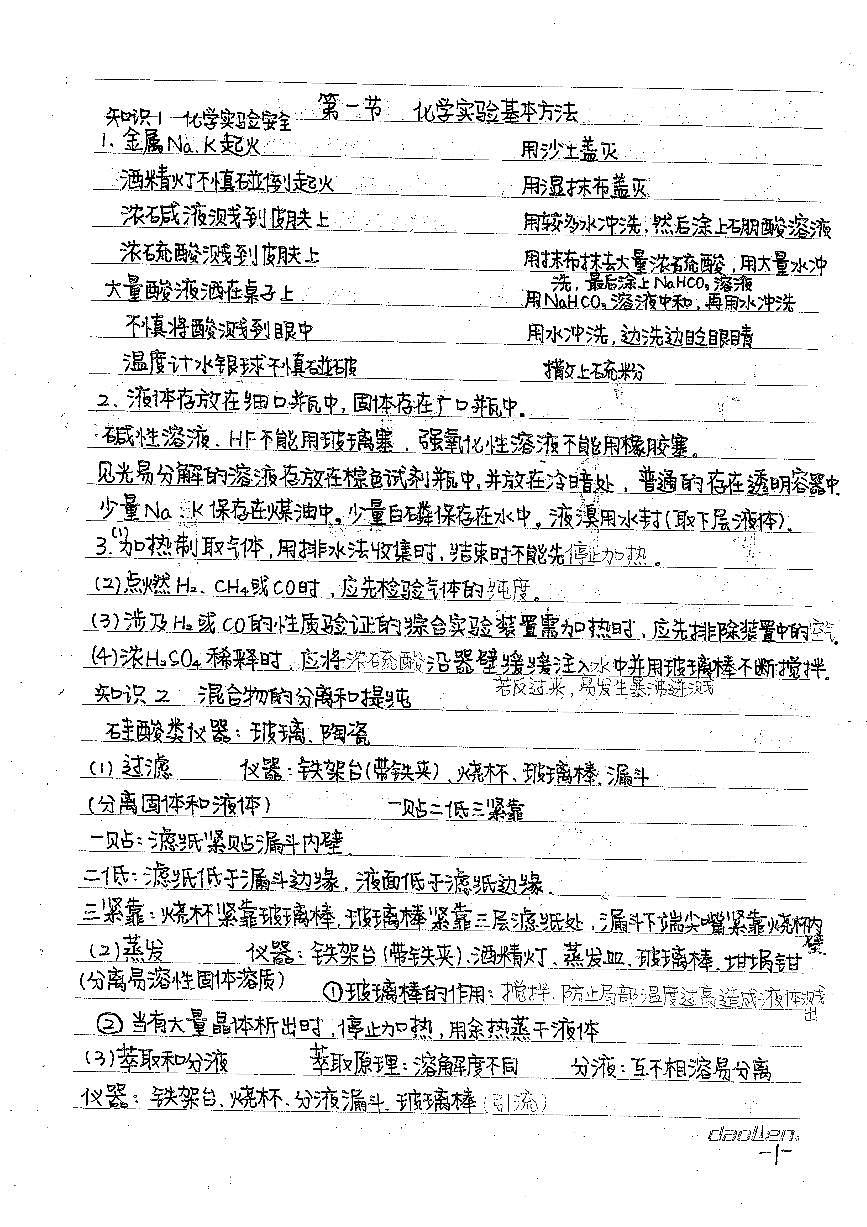 第一节 化学实验基本方法
知识1 化学实验安全
1、金属Na、K起火 用沙土盖灭
酒精灯不慎碰倒起火 用湿抹布盖灭
浓碱液溅到皮肤上 用较多水冲洗,然后涂上硼酸溶液
浓硫酸溅到皮肤上 用抹布抹去大量浓硫酸,用大量水冲
洗,最后涂上NaHCO₃溶液
大量酸液洒在桌子上 用NaHCO₃溶液中和,再用水冲洗
不慎将酸溅到眼中 用水冲洗,边洗边眨眼睛
温度计水银球不慎碰破 撒上硫粉
2、液体存放在细口瓶中,固体存在广口瓶中。
碱性溶液、HF不能用玻璃塞,强氧化性溶液不能用橡胶塞。
见光易分解的溶液存放在棕色试剂瓶中,并放在冷暗处,普通的存在透明容器中.
少量Na、K保存在煤油中。少量白磷保存在水中。液溴用水封(取下层液体).
3.(1)加热制取气体,用排水法收集时,结束时不能先停止加热。
(2)点燃H₂、CH₄或CO时,应先检验气体的纯度。
(3)涉及H₂或CO的性质验证的综合实验装置需加热时,应先排除装置中的空气.
(4)浓H₂SO₄稀释时,应将浓硫酸沿器壁缓缓注入水中并用玻璃棒不断搅拌。
若反过来,易发生暴沸迸溅
知识2 混合物的分离和提纯
硅酸类仪器:玻璃、陶瓷
(1)过滤 仪器:铁架台(带铁夹)、烧杯、玻璃棒、漏斗
(分离固体和液体) 一贴二低三紧靠
一贴:滤纸紧贴漏斗内壁
二低:滤纸低于漏斗边缘,液面低于滤纸边缘、
三紧靠:烧杯紧靠玻璃棒,玻璃棒紧靠三层滤纸处,漏斗下端尖嘴紧靠烧杯内壁
(2)蒸发 仪器:铁架台(带铁夹)、酒精灯、蒸发皿、玻璃棒、坩埚钳
(分离易溶性固体溶质) ①玻璃棒的作用:搅拌,防止局部温度过高造成液体溅出
②当有大量晶体析出时,停止加热,用余热蒸干液体
(3)萃取和分液 萃取原理:溶解度不同 分液:互不相溶易分离
仪器:铁架台、烧杯、分液漏斗、玻璃棒(引流)
daoWen.
-1-